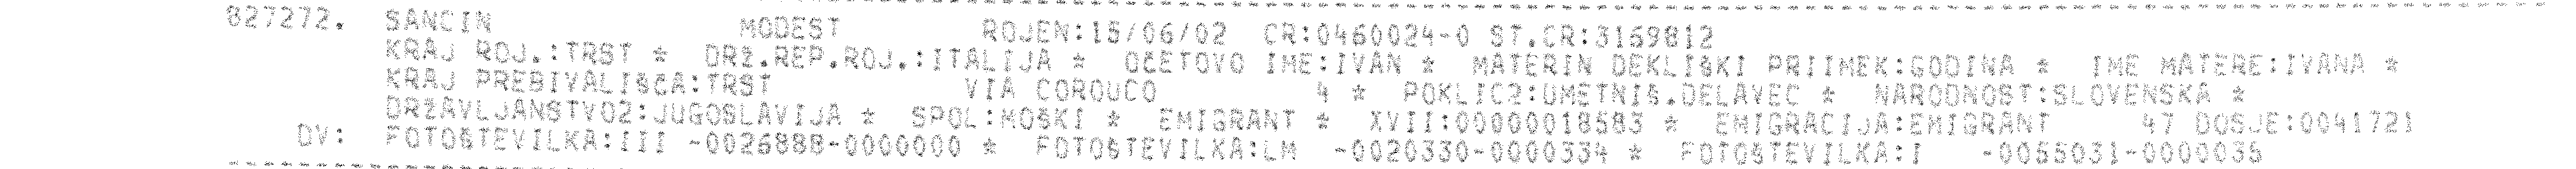 827272. SANCIN MODEST ROJEN:15/06/02 CR:0460024-0 ST.CR:3159812
KRAJ ROJ.:TRST * DRŽ.REP.ROJ.:ITALIJA * OČETOVO IME:IVAN * MATERIN DEKLIŠKI PRIIMEK:GODINA * IME MATERE:IVANA *
KRAJ PREBIVALIŠČA:TRST VIA COROUCO 4 * POKLIC2:UMETNIŠ.DELAVEC * NARODNOST:SLOVENSKA *
DRŽAVLJANSTVO2:JUGOSLAVIJA * SPOL:MOŠKI * EMIGRANT * XVII:00000018583 * EMIGRACIJA:EMIGRANT 47 DOSJE:0041721
DV: FOTOŠTEVILKA:III -0026888-0000000 * FOTOŠTEVILKA:LM -0020330-0000334 * FOTOŠTEVILKA:I -0055031-0000035